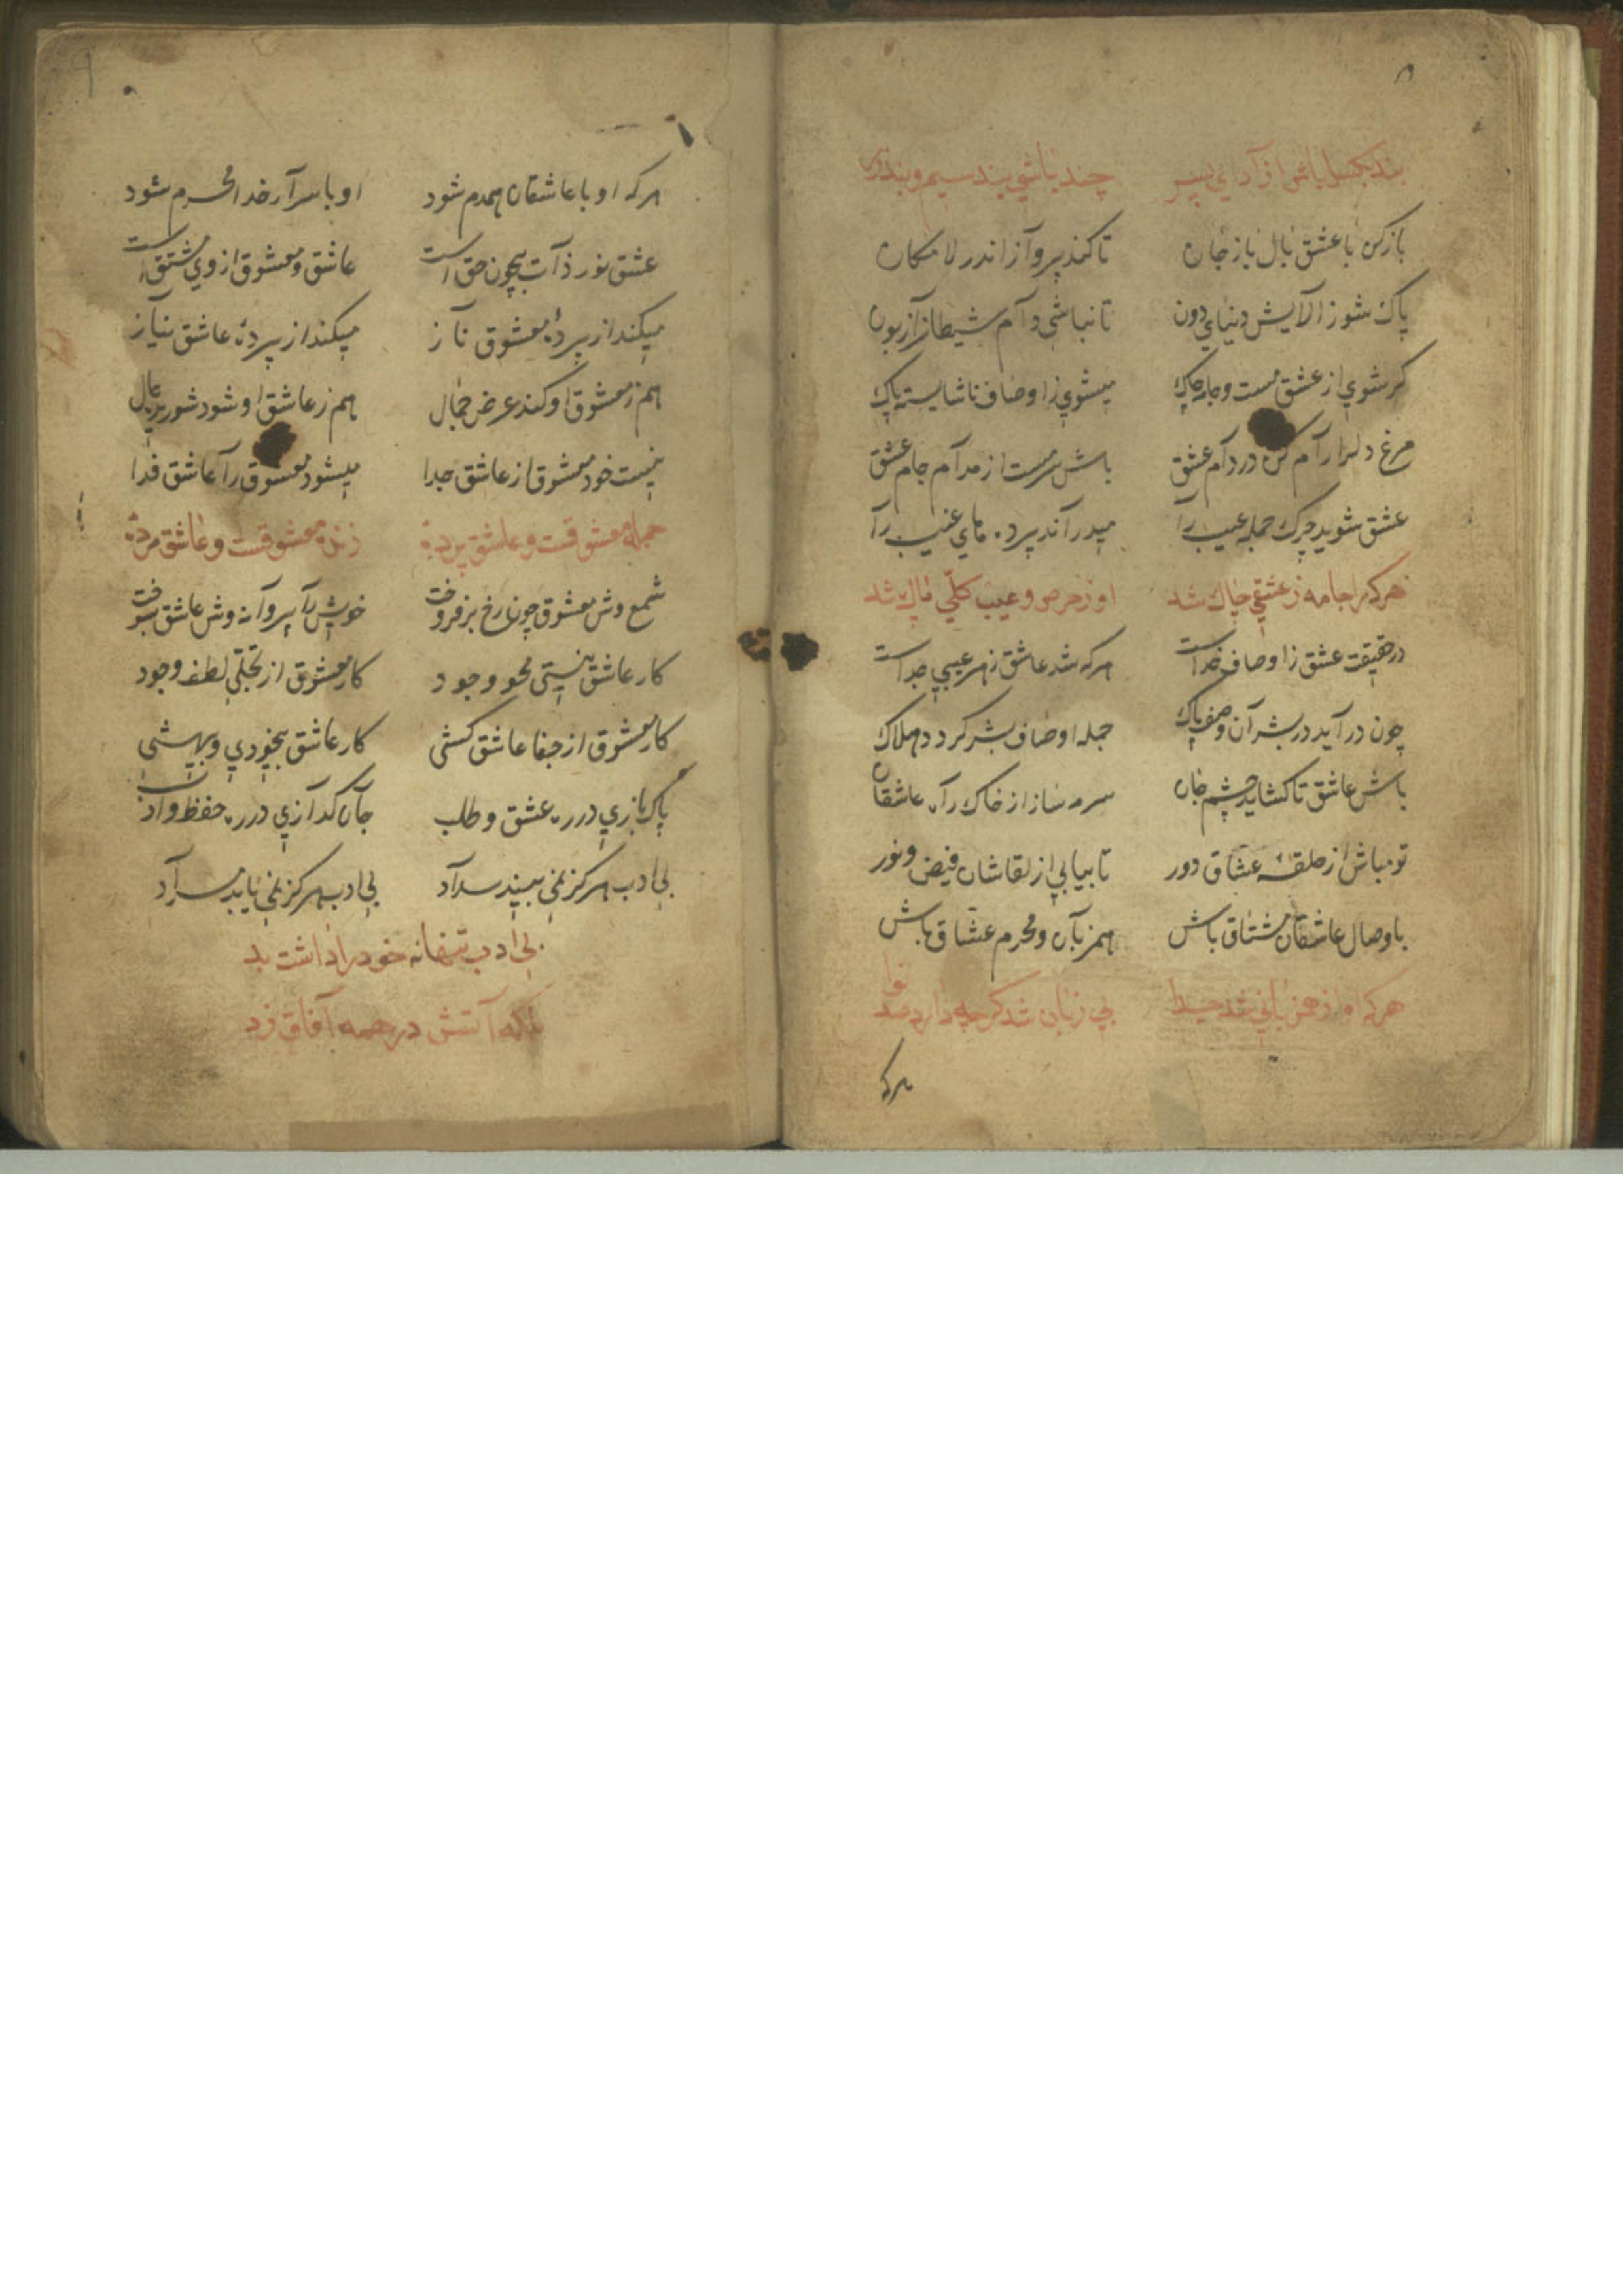 بند بگسل باش آزاد ای پسر چند باشی بند سیم و بند زر
باز کن با عشق بال باز جان تا کند پرواز اندر لامکان
پاک شو ز آلایش دنیای دون تا نباشی دام شیطان را زبون
کر شوی از عشق مست و جامه چاک میشوی ز اوصاف ناشایسته پاک
مرغ دلرا رام کن در دام عشق باش سرمست از مدام جام عشق
عشق شوید چرک جمله عیب را میدراند پرده‌های غیب را
هر کرا جامه ز عشقی چاک شد او ز حرص و عیب کلّی پاک شد
در حقیقت عشق ز اوصاف خداست هرکه شد عاشق ز هر عیبی جداست
چون در آید در بشر آن وصف پاک جمله اوصاف بشر کردد هلاک
باش عاشق تا کشاید چشم جان سرمه ساز از خاک راه عاشقان
تو مباش از حلقهٔ عشاق دور تا بیابی از لقاشان فیض و نور
با وصال عاشقان مشتاق باش همزبان و محرم عشاق باش
هرکه او از همزبانی شد جدا بی زبان شد کرچه دارد صد نوا
هرکه
۹
هرکه او با عاشقان همدم شود او با سرار خدا محرم شود
عشق نور ذات بیچون حق است عاشق و معشوق از وی مشتق است
میکند از پردهٔ معشوق ناز میکند از پردهٔ عاشق نیاز
هم ز معشوق او کند عرض جمال هم ز عاشق او شود شوریده حال
نیست خود معشوق از عاشق جدا میشود معشوق را عاشق فدا
جمله معشوقست و عاشق پردهٔ زنده معشوقست و عاشق مردهٔ
شمع وش معشوق چون رخ بر فروخت خویش را پروانه وش عاشق بسوخت
کار عاشق نیستی محو وجود کار معشوق از تجلّی لطف وجود
کار معشوق از جفا عاشق کشی کار عاشق بیخودی و بیهشی
پاک بازی در ره عشق و طلب جان کدازی در ره حفظ و ادب
بی ادب هرکز نمی بیند مراد بی ادب هرکز نمی یابد مراد
بی ادب تنها نه خود را داشت بد
بلکه آتش در همه آفاق زد